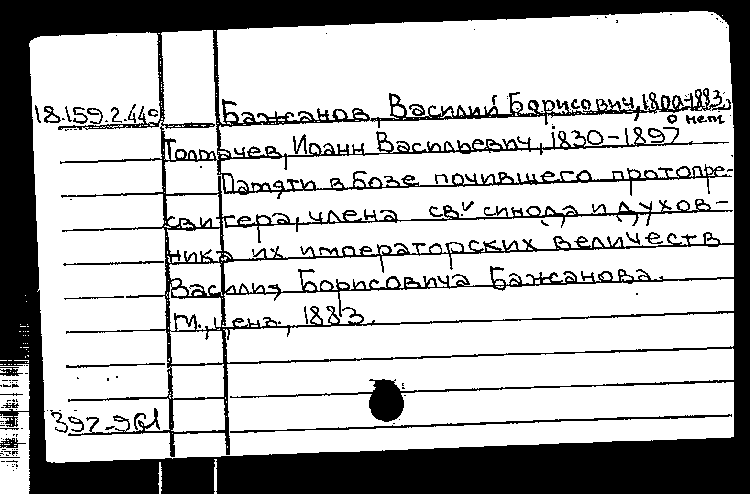 18.159.2.449 Бажанов, Василий Борисович, 1800-1883.
о нем
Толмачев, Иоанн Васильевич, 1830-1897
Памяти в бозе почившего протопре-
свитера, члена св. синода и духов-
ника их императорских величеств
Василия Борисовича Бажанова.
М., ценз., 1883.
392-961